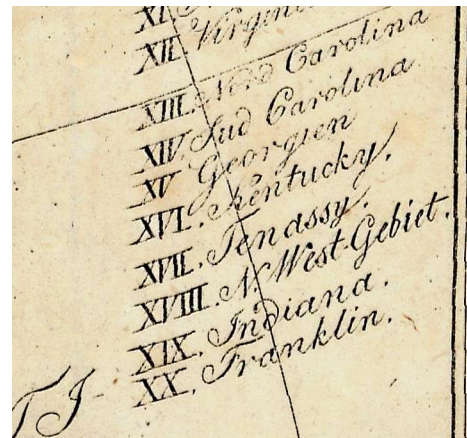 XII. Virginie
XIII. Nord Carolina
XIV. Sud Carolina
XV. Georgien
XVI. Kentucky.
XVII. Tenassy.
XVIII. N. West-Gebiet.
XIX. Indiana.
XX. Franklin.
TI